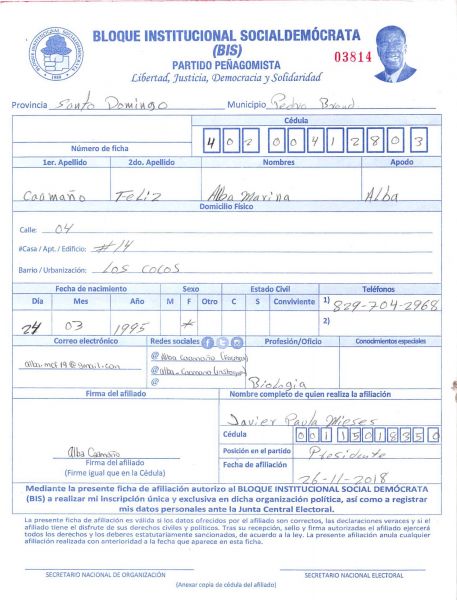 BLOQUE INSTITUCIONAL SOCIALDEMÓCRATA
(BIS)
PARTIDO PEÑAGOMISTA
03814
Libertad, Justicia, Democracia y Solidaridad
Provincia Santo Domingo Municipio Pedro Brand
Cédula
Número de ficha 402 0041280 3
1er. Apellido 2do. Apellido Nombres Apodo
Caamaño Feliz Alba Marina Alba
Domicilio Físico
Calle: 04
#Casa / Apt. / Edificio: #14
Barrio / Urbanización: Los cocos
Fecha de nacimiento Sexo Estado Civil Teléfonos
Día Mes Año M F Otro C S Conviviente 1) 829-704-2968
2)
24 03 1995
Correo electrónico Redes sociales Profesión/Oficio Conocimientos especiales
@ Alba Caamaño
alba-mcf19@gmail.com @alba-Caamaño
@ Biologia
Firma del afiliado Nombre completo de quien realiza la afiliación
Javier Paula Mieses
Cédula 001 1501835 0
Alba Caamaño Posición en el partido Presidente
Firma del afiliado Fecha de afiliación
(Firme igual que en la Cédula) 26-11-2018
Mediante la presente ficha de afiliación autorizo al BLOQUE INSTITUCIONAL SOCIAL DEMÓCRATA
(BIS) a realizar mi inscripción única y exclusiva en dicha organización política, así como a registrar
mis datos personales ante la Junta Central Electoral.
La presente ficha de afiliación es válida si los datos ofrecidos por el afiliado son correctos, las declaraciones veraces y si el
afiliado tiene el disfrute de sus derechos civiles y políticos. Tras su recepción, sello y firma autorizadas el afiliado ejercerá
todos los derechos y los deberes estatutariamente sancionados, de acuerdo a la ley. La presente afiliación anula cualquier
afiliación realizada con anterioridad a la fecha que aparece en esta ficha.
SECRETARIO NACIONAL DE ORGANIZACIÓN SECRETARIO NACIONAL ELECTORAL
(Anexar copia de cédula del afiliado)